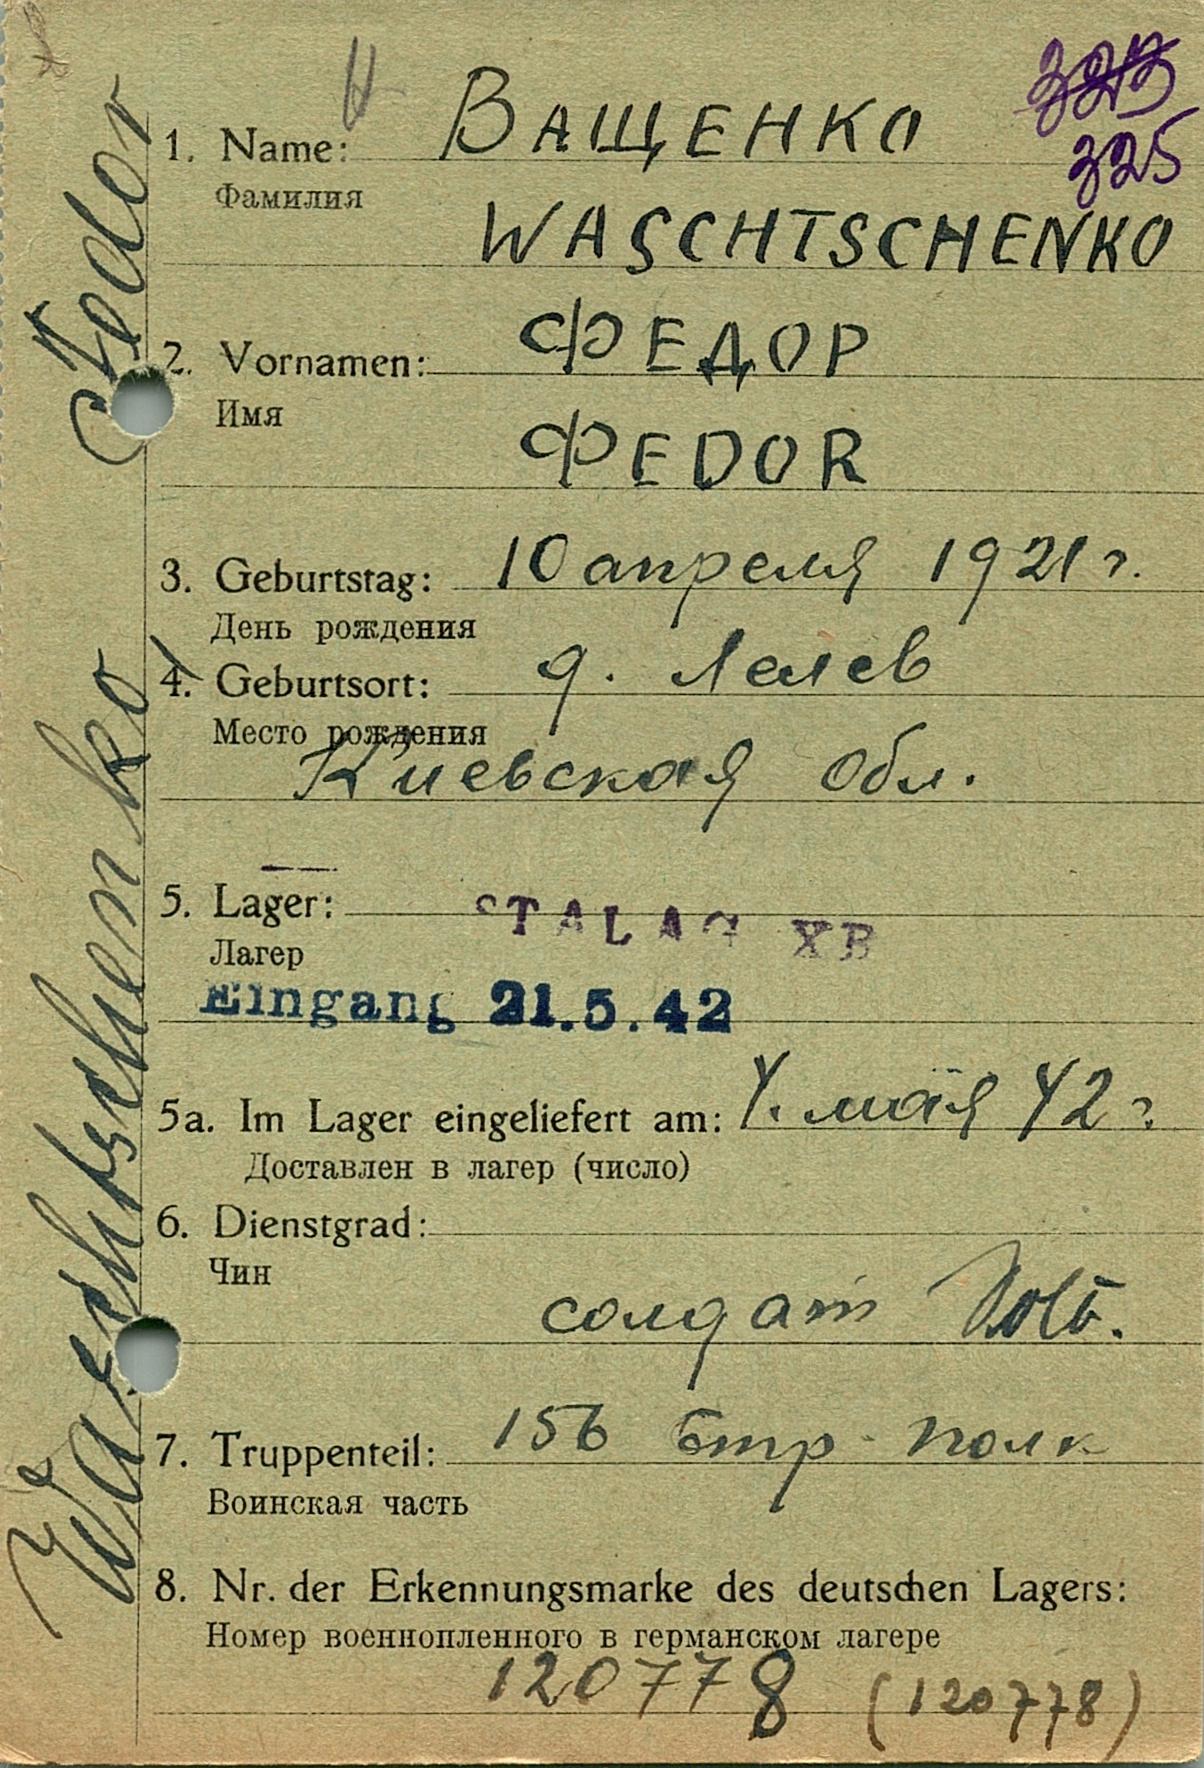 323
325
1. Name: ВАЩЕНКО
Фамилия
WASCHTSCHENKO
2. Vornamen: ФЕДОР
Имя
ФEDOR
3. Geburtstag: 10 апреля 1921 г.
День рождения
4. Geburtsort: д. Лелев
Место рождения
Киевская обл.
5. Lager: STALAG XB
Лагер
Eingang 21.5.42
5a. Im Lager eingeliefert am: 4. мая 42 г.
Доставлен в лагер (число)
6. Dienstgrad:
Чин
солдат Solt.
7. Truppenteil: 156 стр. полк
Воинская часть
8. Nr. der Erkennungsmarke des deutschen Lagers:
Номер военнопленного в германском лагере
120778 (120778)
Waschtschenko, Fedor